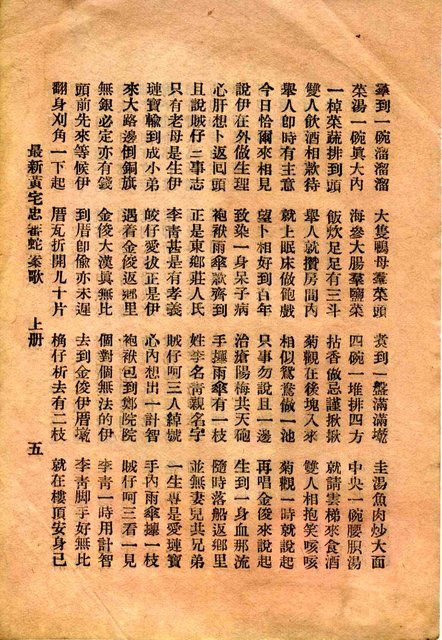 羣到一碗滿溜溜 大隻鴨母羣菜頭 煑到一盤滿滿墘 圭湯魚肉炒大面
菜湯一碗與大內 海參大腸羣鹽菜 四碗一堆排四方 中央一碗腰脷湯
一棹菜蔬排到頭 飯炊足足有三斗 拈香做忌謹揪揪 就請雲梯來食酒
雙人飲酒相款待 舉人就攢房間內 菊觀在後塊入來 雙人相抱笑咳咳
舉人卽時有主意 就上眠床做鮑戲 相似鴛鴦做一池 菊觀一時就說起
今日恰爾來相見 望卜相好到百年 只事勿說且一邊 再唱金俊來說起
說伊在外做生理 致染一身呆子病 治瘡陽梅共天砲 生到一身血那流
心肝想卜返囘頭 袍袱雨傘款齊到 手攑雨傘有一枝 隨時落船返鄉里
且說賊仔三事志 正是東鄉莊人氏 姓李名靑親名字 並無妻兒共兄弟
只有老母是生伊 李靑甚是有孝義 賊仔呵三人綽號 一生專是愛璉寶
璉寶輸到成小弟 皎仔愛拔正是伊 心內想出一計智 手內雨傘攑一枝
來大路邊倒銅旗 遇着金俊返鄉里 袍袱包到鄭院院 賊仔呵三看一見
無銀必定亦有錢 金俊大漢眞無比 個對個無法的伊 李靑一時用計智
頭前先來等候伊 到厝卽偸亦未遲 去到金俊伊厝墘 李靑脚手好無比
翻身刈角一下起 厝瓦折開几十片 桷仔析去有二枝 就在樓頂安身已
最新黃宅忠審蛇案歌 上册 五